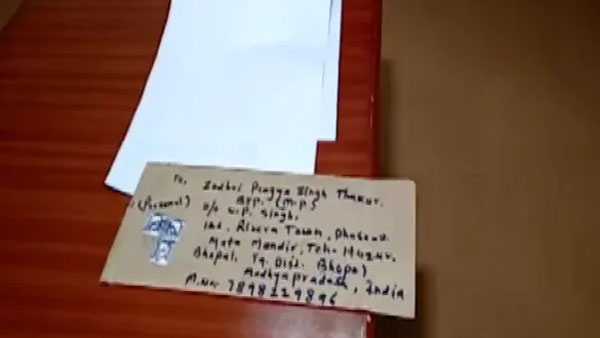 To,
Sadhvi Pragya Singh Thakur.
(Personal) MP. (M.P.)
C/o C.P. Singh,
Riviera Town,
Mata Mandir, Teh. Huzur,
Bhopal, Tq. Dist. Bhopal
Madhyapradesh, India
M.No. 7898229896